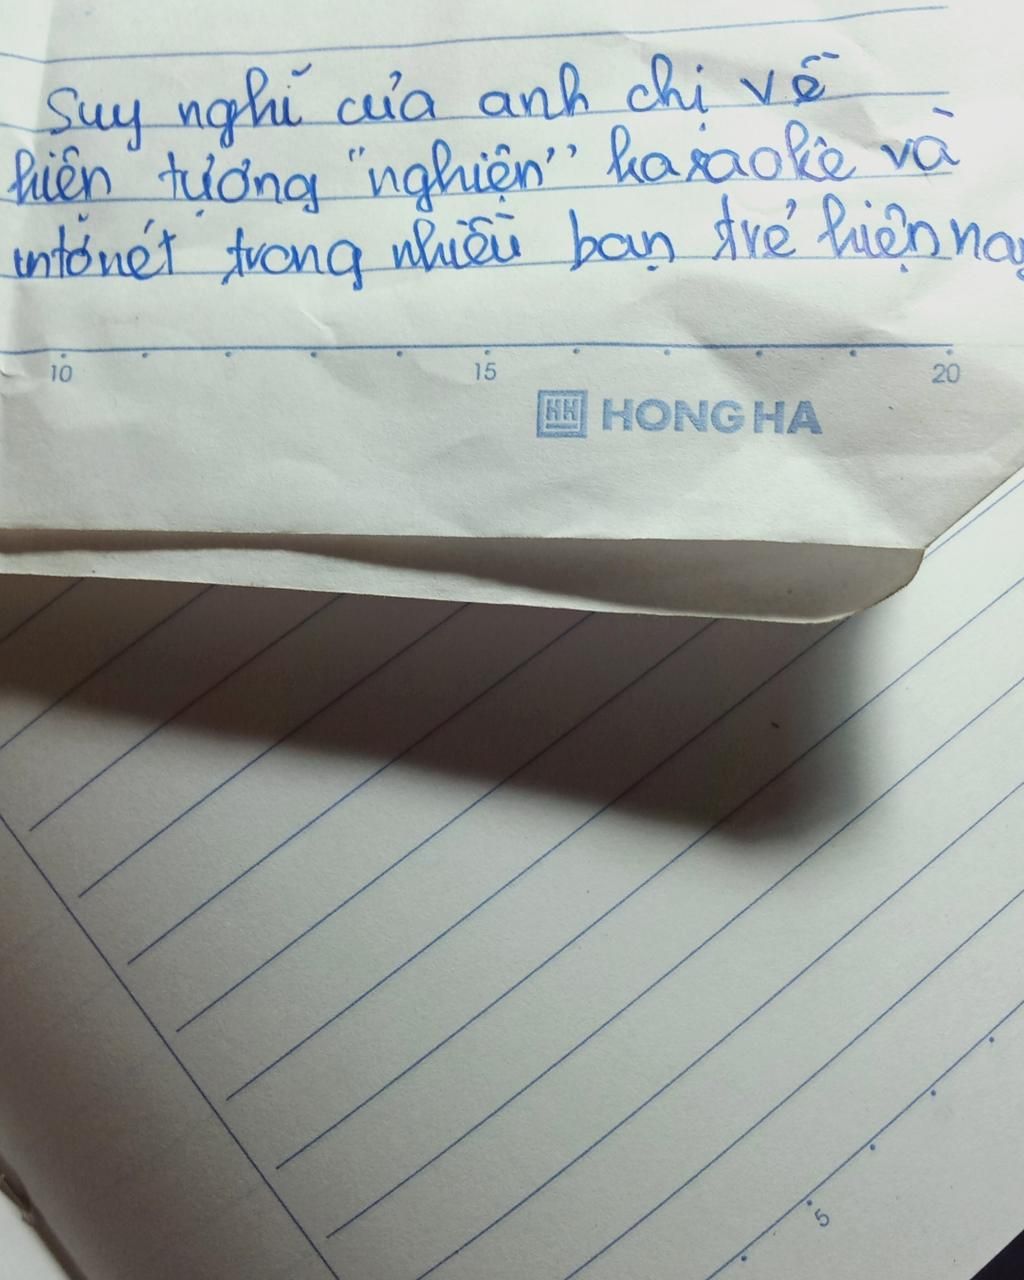 Suy nghĩ của anh chị về
hiện tượng "nghiện" karaoke và
intơnét trong nhiều bạn trẻ hiện nay
10 15 20
HH HONG HA
5